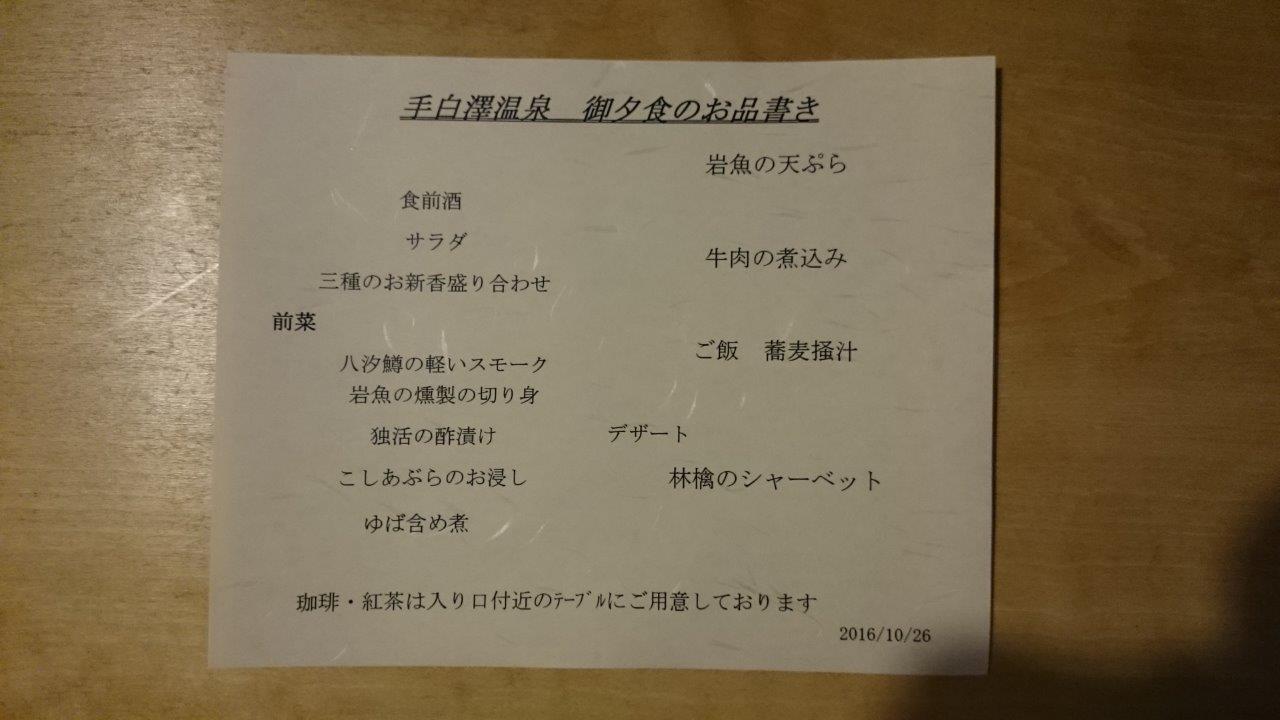 手白澤温泉　御夕食のお品書き
食前酒
サラダ
三種のお新香盛り合わせ
前菜
八汐鱒の軽いスモーク
岩魚の燻製の切り身
独活の酢漬け
こしあぶらのお浸し
ゆば含め煮
岩魚の天ぷら
牛肉の煮込み
ご飯　蕎麦掻汁
デザート
林檎のシャーベット
珈琲・紅茶は入り口付近のﾃｰﾌﾞﾙにご用意しております
2016/10/26